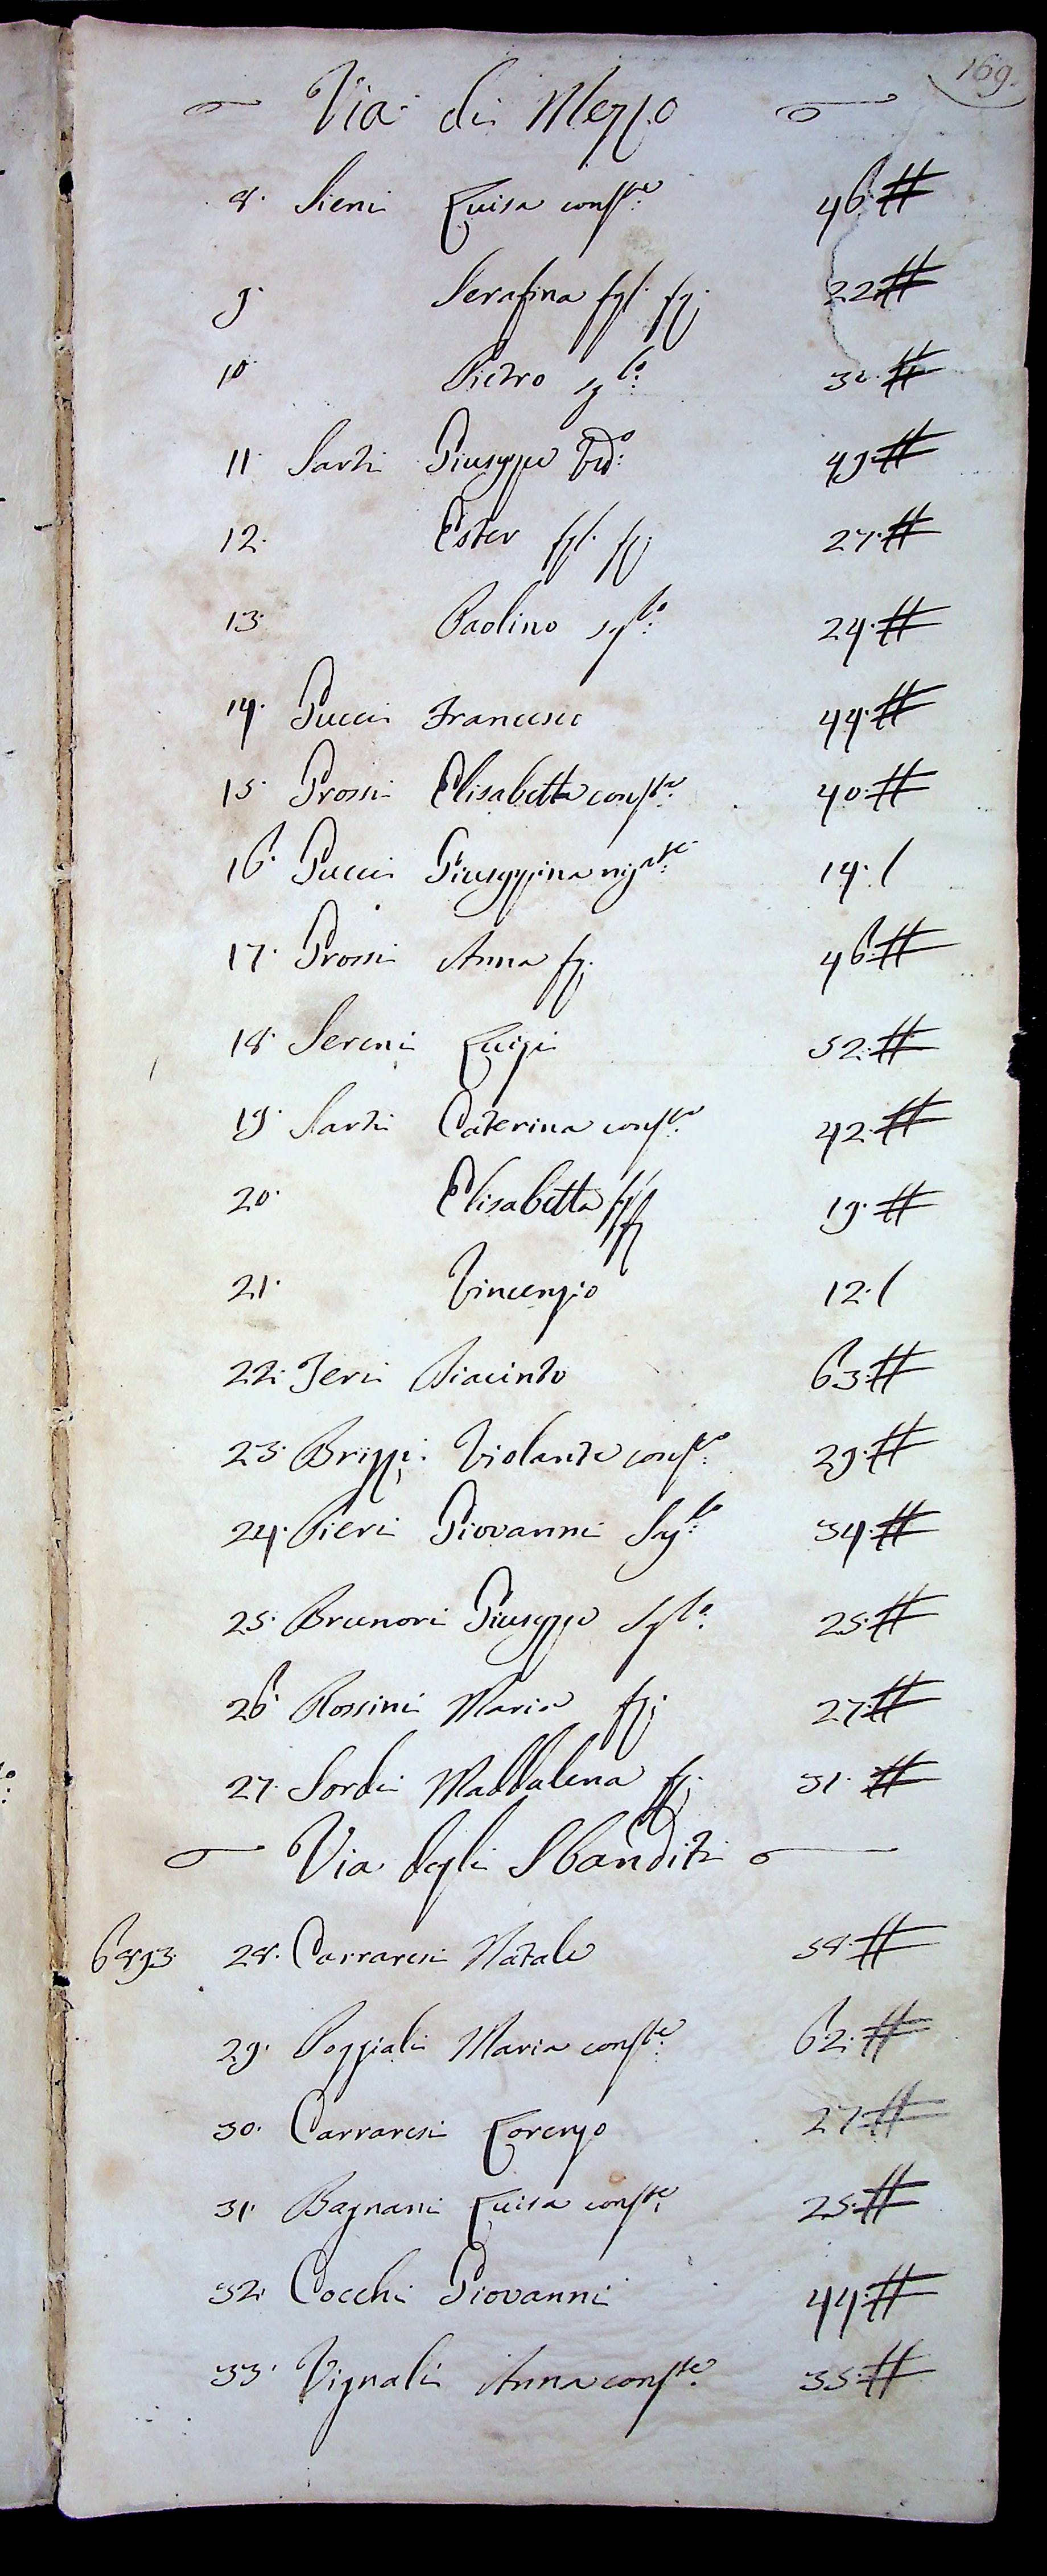 169.
Via di Mezzo
8. Sieni Luisa cons.te 46 #
9. Serafina figl. fa. 22 #
10. Pietro sg.lo 32 #
11. Sarti Giuseppe Vd.o 49 #
12. Ester figl. fa. 27 #
13. Paolino sg.lo 24 #
14. Pucci Francesco 44 #
15. Grossi Elisabetta cons.te 40 #
16. Pucci Giuseppina 14. /
17. Grossi Anna fa. 46 #
18. Sereni Luigi 52 #
19. Sarti Caterina cons.te 42 #
20. Elisabetta 19 #
21. Vincenzio 12. /
22. Ieri Giacinto 63 #
23. Brizzi Violante cons.te 29 #
24. Pieri Giovanni Sg.lo 34 #
25. Brunori Giuseppe Sg.lo 25 #
26. Rossini Maria fa. 27 #
27. Sordi Maddalena fa. 31. #
Via degli Sbanditi
6893. 28. Carraresi Natale 58 #
29. Poggiali Maria cons.te 62 #
30. Carraresi Lorenzo 27 #
31. Bagnani Luisa cons.te 25 #
32. Cocchi Giovanni 44 #
33. Vignali Anna cons.te 35 #